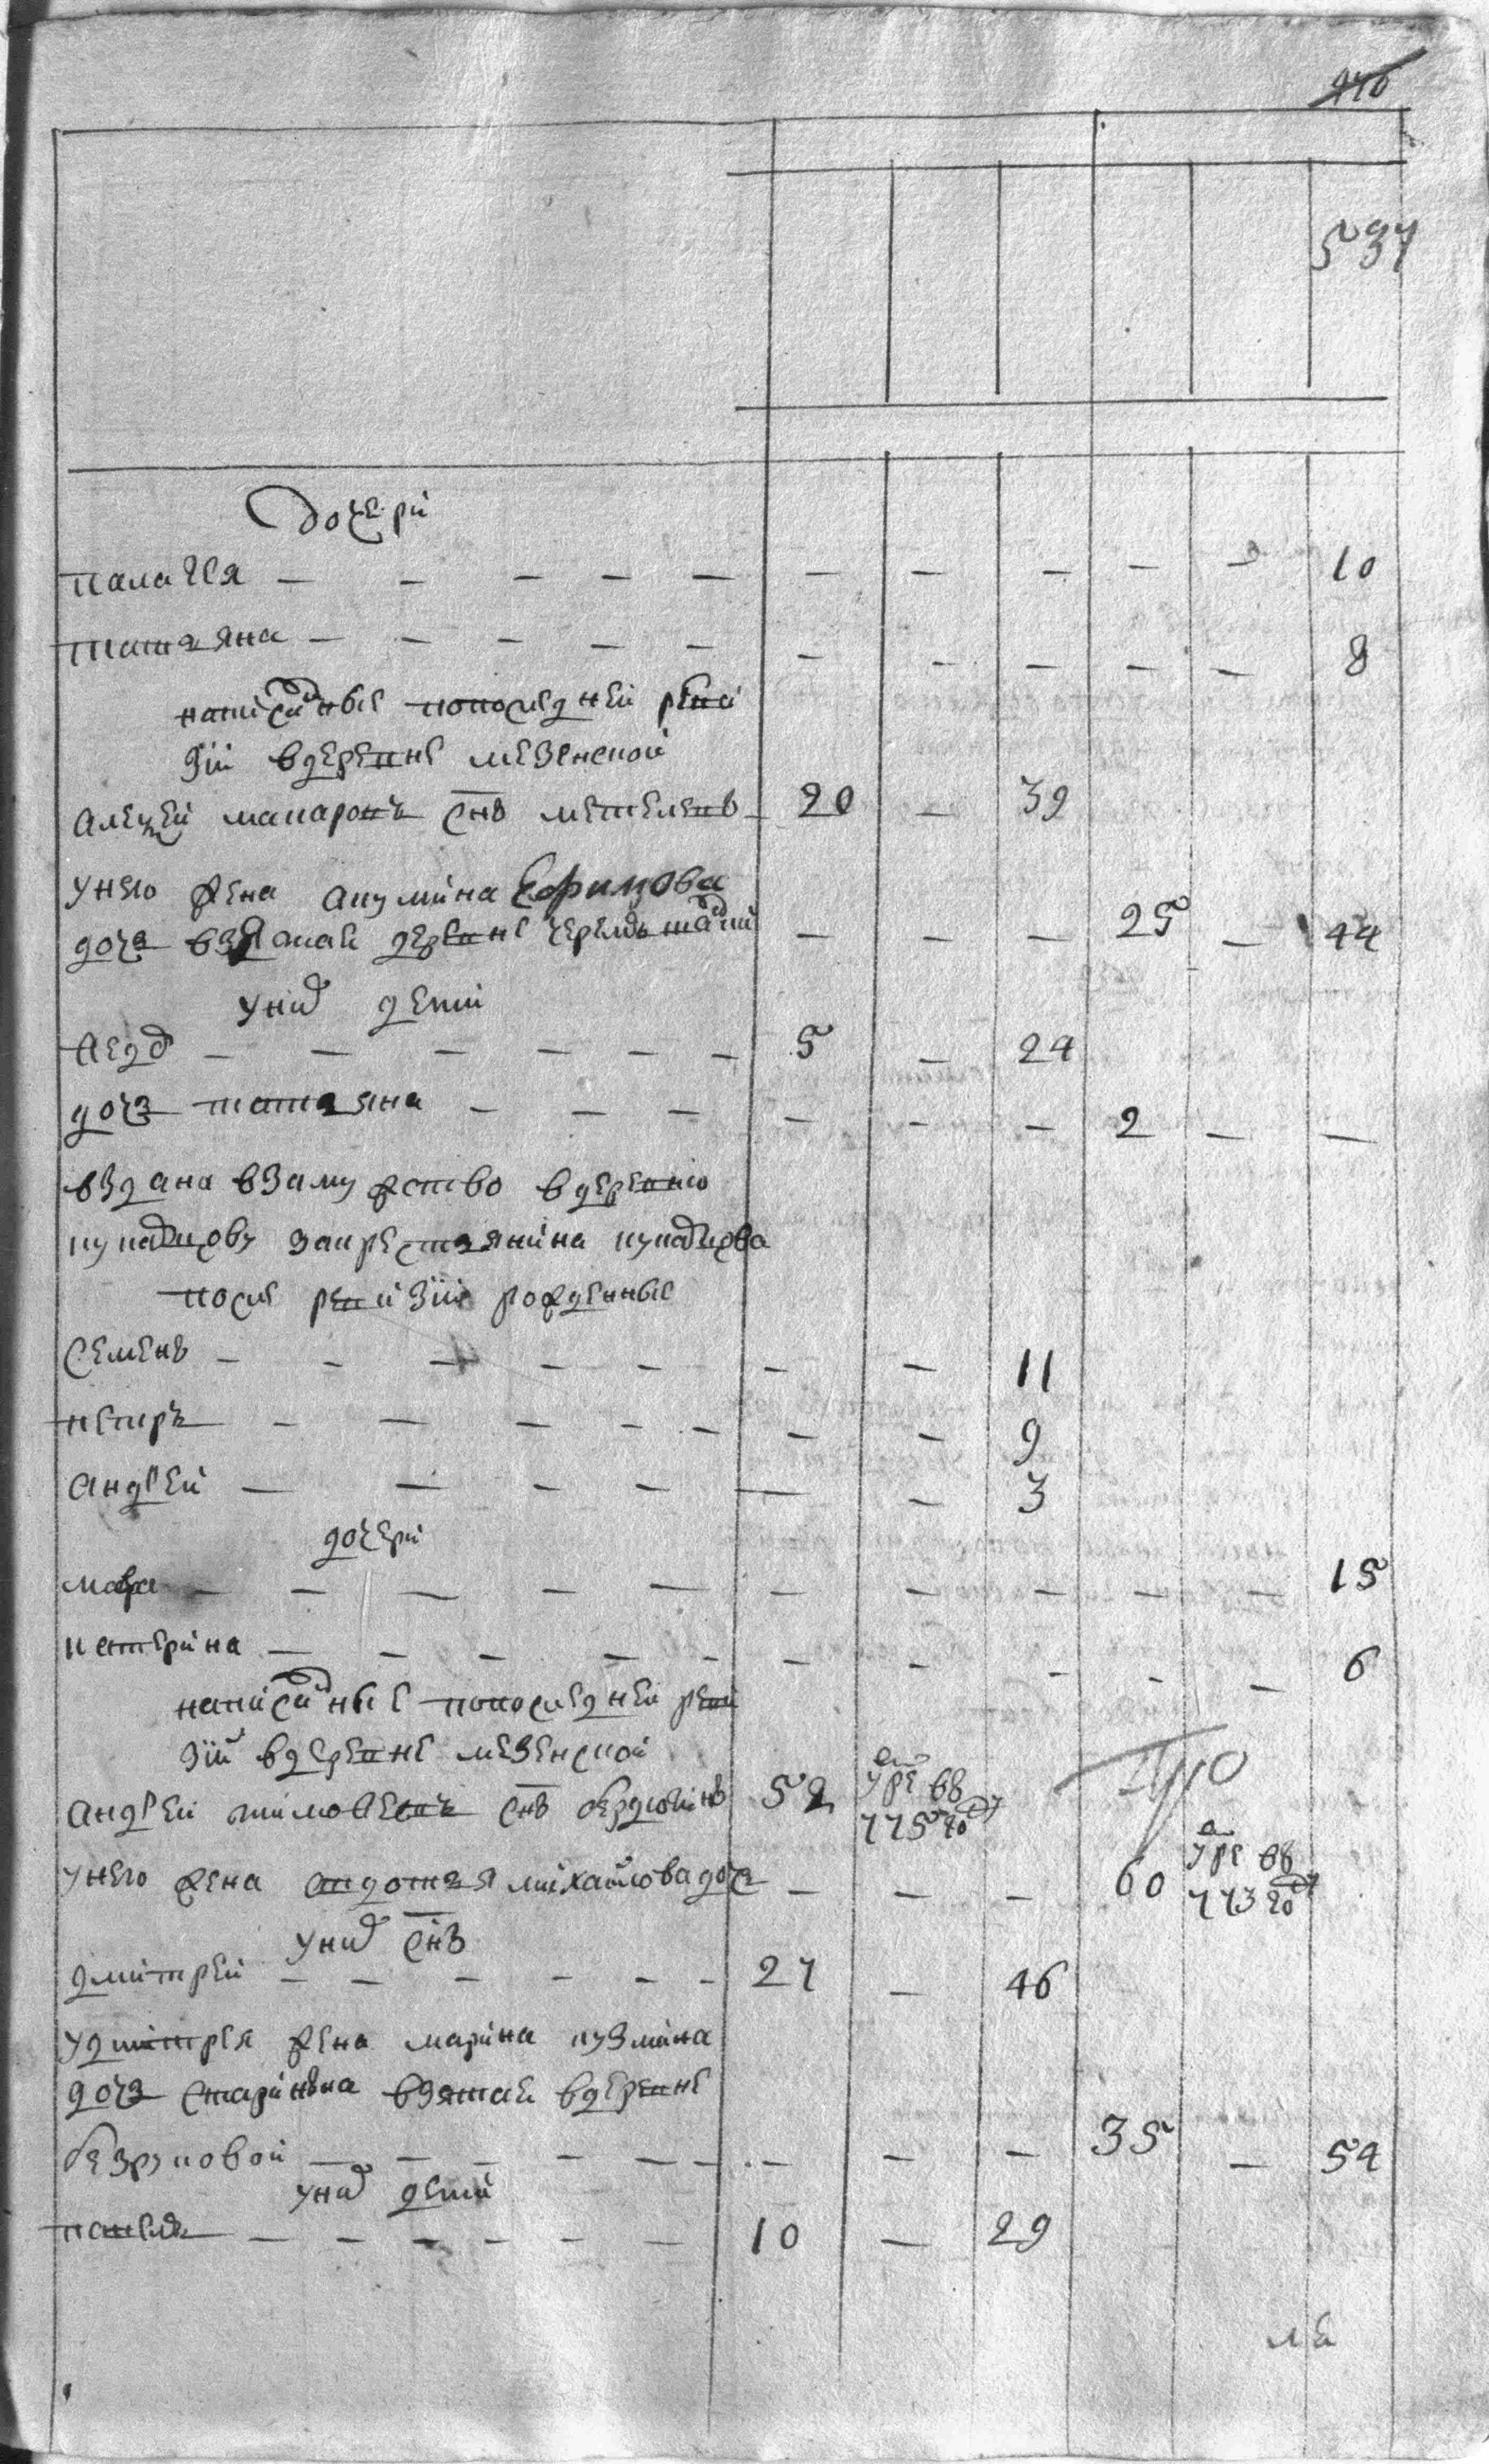 537
Дочери
палагея — — — — — — — — — — 10
татьяна — — — — — — — — — — 8
написанные попоследней реви
зии вдеревне мезенской
алексей макаровъ снъ метелевъ 20 — 39
унего жена акулина Ефимова
дочь взятая деревне — — — 25 — 44
уних дети
— — — — — — 5 — 24
дочь татьяна — — — — — — 2 — —
выдана взамужство вдеревню
закрестьянина
после ревизии рожденные
семенъ — — — — — — — 11
петръ — — — — — — — 9
андрей — — — — — — 3
дочери
мавра — — — — — — — — — — 15
катерина — — — — — — — — — — 6
написанные попоследней реви
зии вдеревне мезенской
андрей тимофеевъ снъ бердюгинъ 52 умре въ 775 году
унего жена авдотья михайлова дочь — — — 60 умре въ 773 году
уних снъ
дмитрей — — — — — — 27 — 46
удмитрея жена марина кузмина
дочь старинная взятая вдеревне
безруковой — — — — — — — — — 35 — 54
уних дети
павелъ — — — — — — 10 — 29